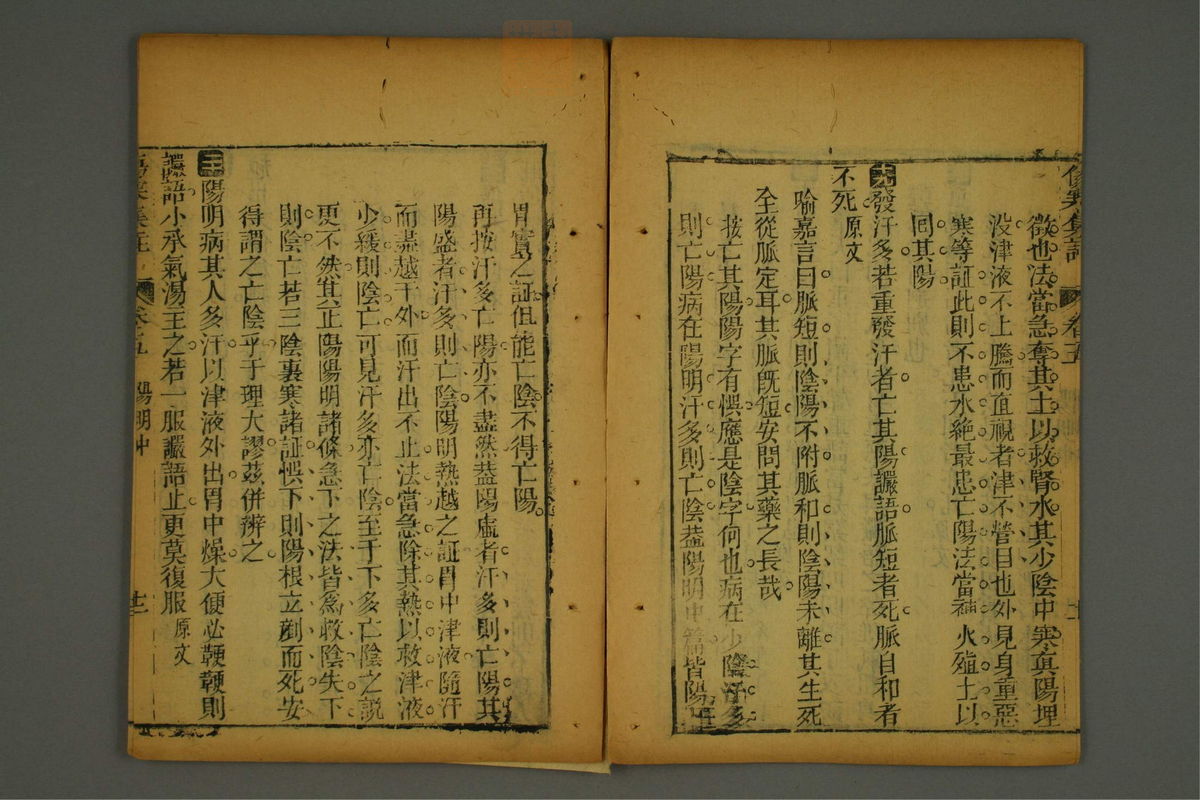 傷寒集註 卷五
徵也法當急奪其土以救腎水其少陰中寒真陽埋
没津液不上騰而直視者津不營目也外見身重惡
寒等証此則不患水絶最患亡陽法當補火殖土以
回其陽
發汗多若重發汗者亡其陽讝語脈短者死脈自和者
不死 原文
喻嘉言曰脈短則陰陽不附脈和則陰陽未離其生死
全從脈定耳其脈既短安問其藥之長哉
按亡其陽陽字有悞應是陰字何也病在少陰汗多
則亡陽病在陽明汗多則亡陰葢陽明中篇皆陽明正
胃實之証但能亡陰不得亡陽
再按汗多亡陽亦不盡然葢陽虛者汗多則亡陽其
陽盛者汗多則亡陰陽明熱越之証胃中津液隨汗
而盡越于外而汗出不止法當急除其熱以救津液
少緩則陰亡可見汗多亦亡陰至于下多亡陰之説
更不然矣正陽陽明諸條急下之法皆為救陰失下
則陰亡若三陰裏寒諸証悞下則陽根立剷而死安
得謂之亡陰乎于理大謬茲併辨之
三 陽明病其人多汗以津液外出胃中燥大便必鞕鞕則
讝語小承氣湯主之若一服讝語止更莫復服 原文
卷五 陽明中